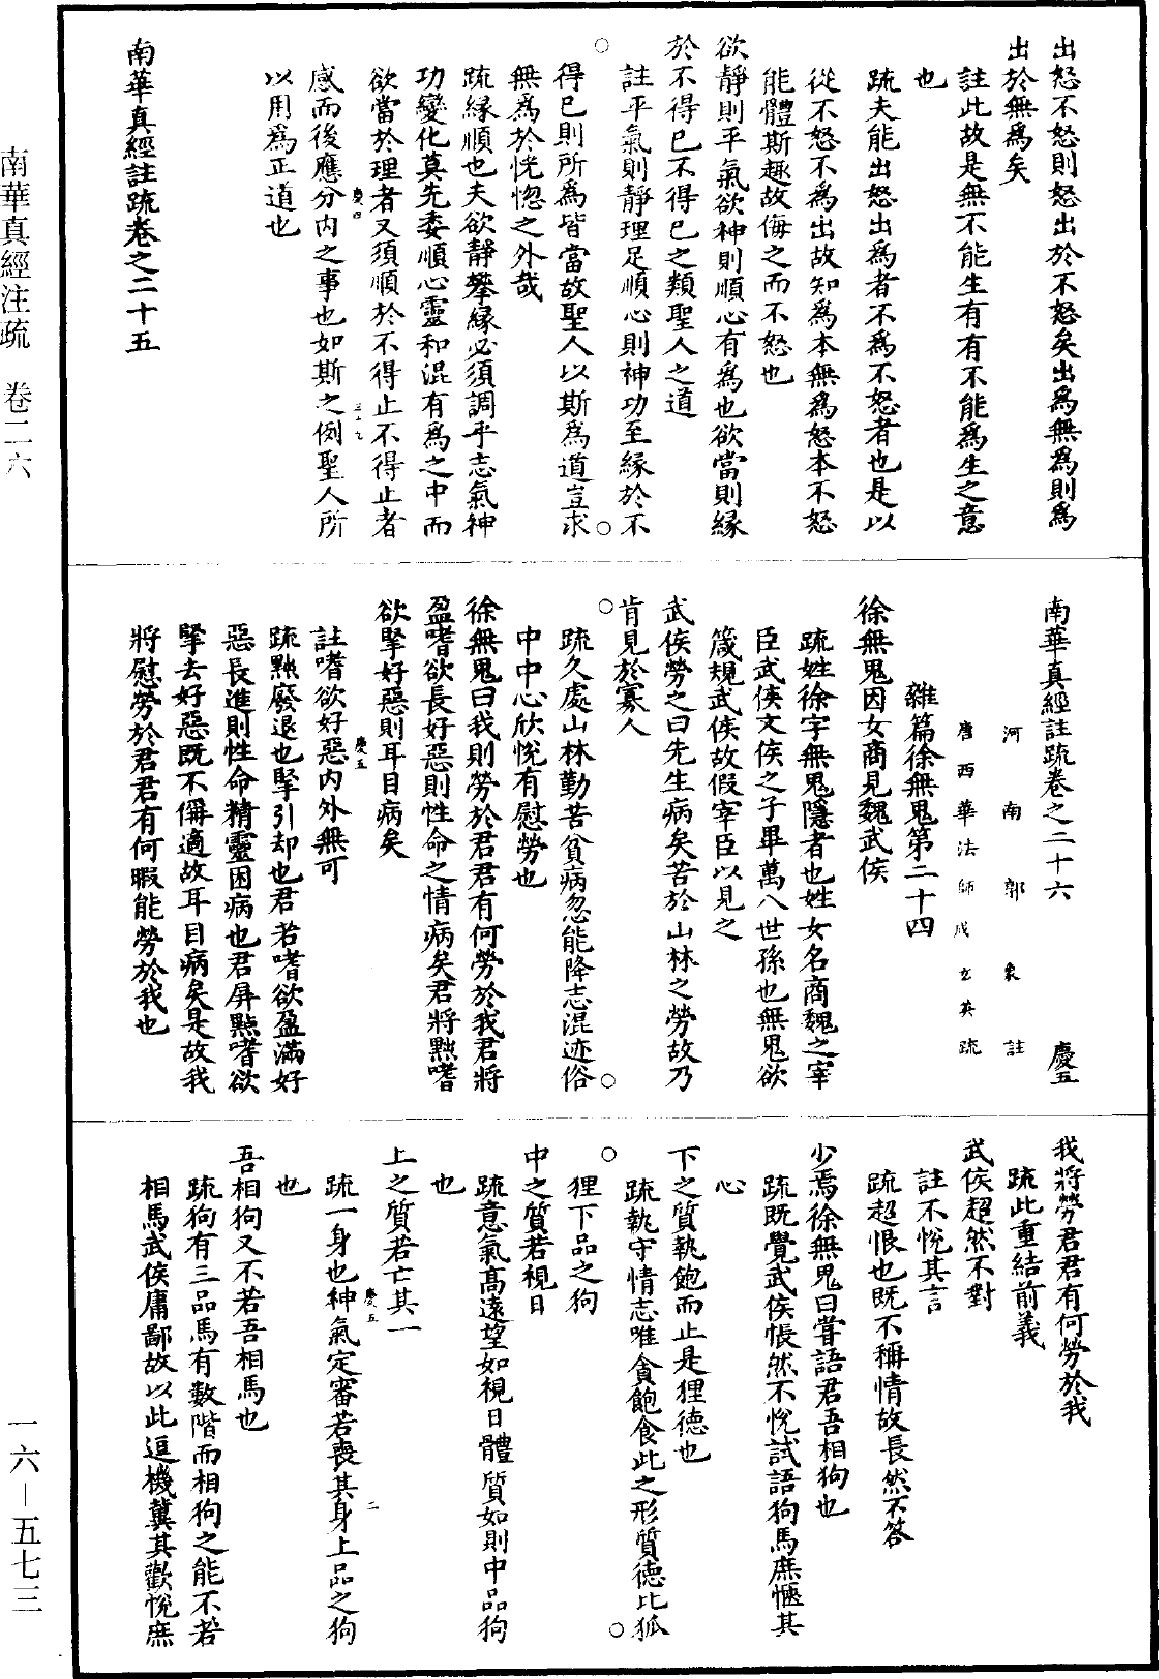 出怒不怒則怒出於不怒矣出爲無爲則爲
出於無爲矣
註此故是無不能生有有不能爲生之意
也
疏夫能出怒出爲者不爲不怒者也是以
從不怒不爲出故知爲本無爲怒本不怒
能體斯趣故侮之而不怒也
欲靜則平氣欲神則順心有爲也欲當則緣
於不得已不得已之類聖人之道
註平氣則靜理足順心則神功至緣於不
得已則所爲皆當故聖人以斯爲道豈求
無爲於恍惚之外哉
疏緣順也夫欲靜攀緣必須調乎志氣神
功變化莫先委順心靈和混有爲之中而
欲當於理者又須順於不得止不得止者
感而後應分內之事也如斯之例聖人所
以用爲正道也
南華真經註疏卷之二十五
南華真經註疏卷之二十六 慶五
河南郭象註
唐西華法師成玄英疏
雜篇徐無鬼第二十四
徐無鬼因女商見魏武侯
疏姓徐字無鬼隱者也姓女名商魏之宰
臣武侯文侯之子畢萬八世孫也無鬼欲
箴規武侯故假宰臣以見之
武侯勞之曰先生病矣苦於山林之勞故乃
肯見於寡人
疏久處山林勤苦貧病忽能降志混迹俗
中中心欣悅有慰勞也
徐無鬼曰我則勞於君君有何勞於我君將
盈嗜欲長好惡則性命之情病矣君將黜嗜
欲掔好惡則耳目病矣
註嗜欲好惡內外無可
疏黜廢退也掔引却也君若嗜欲盈滿好
惡長進則性命精靈困病也君屏黜嗜欲
掔去好惡既不偁適故耳目病矣是故我
將慰勞於君君有何暇能勞於我也
我將勞君君有何勞於我
疏此重結前義
武侯超然不對
註不悅其言
疏超恨也既不稱情故長然不答
少焉徐無鬼曰嘗語君吾相狗也
疏既覺武侯悵然不悅試語狗馬庶愜其
心
下之質執飽而止是狸德也
疏執守情志唯貪飽食此之形質德比狐
狸下品之狗
中之質若視日
疏意氣高遠望如視日體質如則中品狗
也
上之質若亡其一
疏一身也神氣定審若喪其身上品之狗
也
吾相狗又不若吾相馬也
疏狗有三品馬有數階而相狗之能不若
相馬武侯庸鄙故以此逗機冀其歡悅庶
慶四
慶五
慶五
二
南華真經注疏 卷二六
一六—五七三